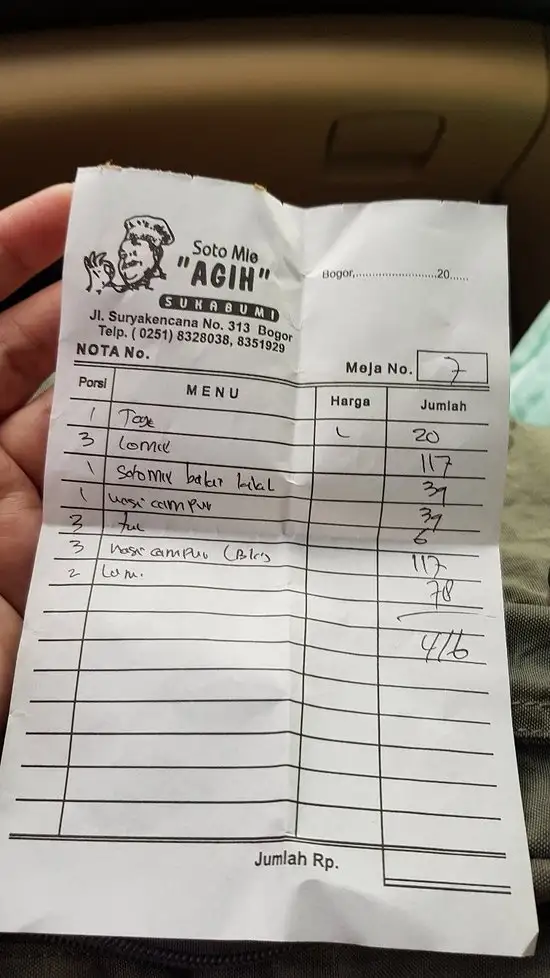 Soto Mie
"AGIH"
SUKABUMI
Jl. Suryakencana No. 313 Bogor
Telp. ( 0251) 8328038, 8351929
Bogor,..........................20......
NOTA No.
Meja No. 7
Porsi MENU Harga Jumlah
1 20
3 Lomie 117
1 Sotomie 39
1 nasi campur 39
3 6
3 nasi campur 117
2 78
416
Jumlah Rp.